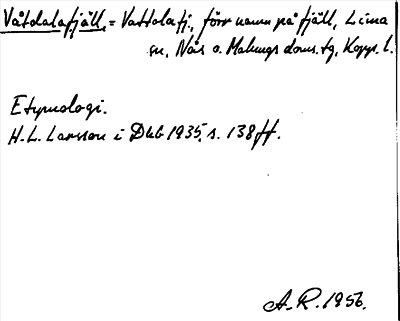 Våtdalafjäll, = Vattolafj., förr namn på fjäll, Lima
sn, Nås o. Malungs doms. tg, Kopp. l.
Etymologi.
H. L. Larsson i DHb 1935, s. 138 ff.
A. R. 1956.